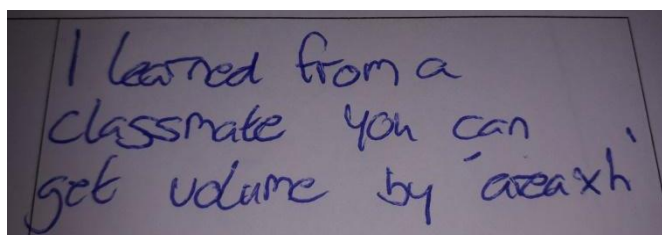 I learned from a
classmate you can
get volume by 'areaxh'